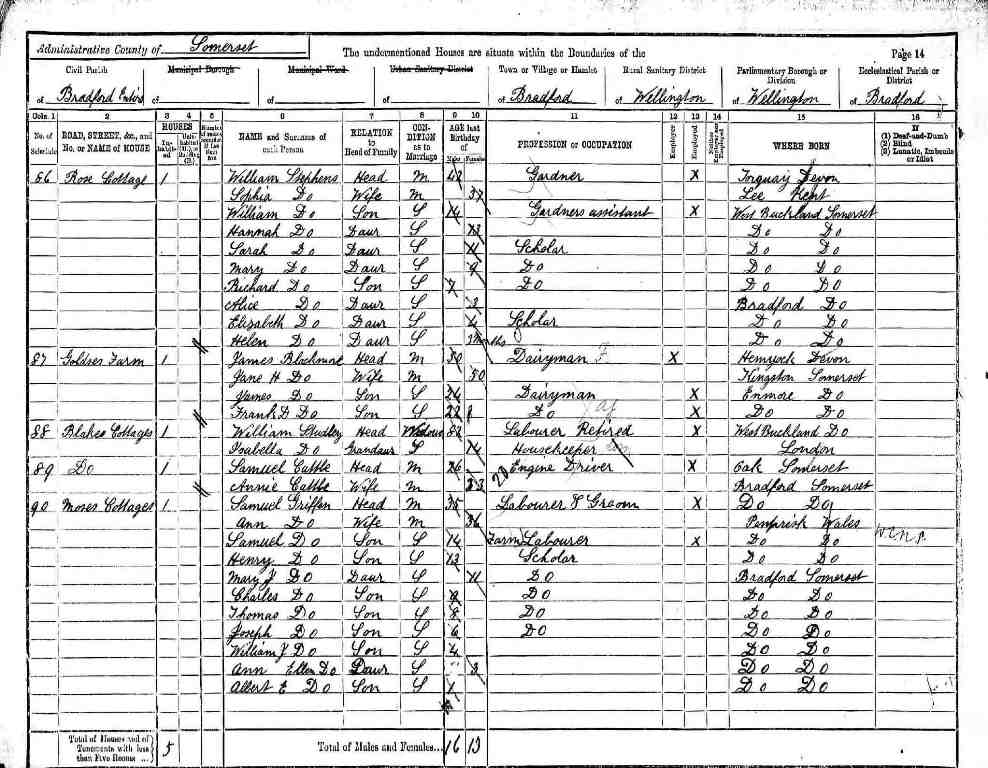 Administrative County of Somerset
The undermentioned Houses are situate within the Boundaries of the
Page 14
Civil Parish of Bradford Municipal Borough of Municipal Ward of Urban Sanitary District of Town or Village or Hamlet of Bradford Rural Sanitary District of Wellington Parliamentary Borough or Division of Wellington Ecclesiastical Parish or District of Bradford
Cols. 1 2 3 4 5 6 7 8 9 10 11 12 13 14 15 16
No. of Schedule ROAD, STREET, &c., and No. or NAME of HOUSE HOUSES NAME and Surname of each Person RELATION to Head of Family CONDITION as to Marriage AGE last Birthday of Males Females PROFESSION or OCCUPATION Employer Employed Neither Employer nor Employed WHERE BORN If (1) Deaf-and-Dumb (2) Blind (3) Lunatic, Imbecile or Idiot
86 Rose Cottage 1 William Stephens Head M 42 Gardner X Torquay Devon
Sophia Do Wife M 37 Lee Kent
William Do Son S 14 Gardners assistant X West Buckland Somerset
Hannah Do Daur S 13 Do Do
Sarah Do Daur S 11 Scholar Do Do
Mary Do Daur S 9 Do Do Do
Richard Do Son S 7 Do Do Do
Alice Do Daur S Bradford Do
Elizabeth Do Daur S 4 Scholar Do Do
Helen Do Daur S 3 Months Do Do
87 Farm 1 James Head M 50 Dairyman X Hemyock Devon
Jane H Do Wife M 50 Kingston Somerset
James Do Son S 24 Dairyman X Enmore Do
Frank Do Son S 22 Do X Do Do
88 Blakes Cottages 1 William Studley Head Widower 82 Labourer Retired X West Buckland Do
Isabella Do Grandaur S 14 Housekeeper London
89 Do 1 Samuel Cattle Head M 26 Engine Driver X Oak Somerset
Annie Cattle Wife M 23 Bradford Somerset
90 Moses Cottages 1 Samuel Griffen Head M 35 Labourer & Groom X Do Do
Ann Do Wife M 36 Wales
Samuel Do Son S 14 Farm Labourer X Do Do
Henry Do Son S 13 Scholar Do Do
Mary J Do Daur S 11 Do Bradford Somerset
Charles Do Son S 9 Do Do Do
Thomas Do Son S 8 Do Do Do
Joseph Do Son S 6 Do Do Do
William J Do Son S 4 Do Do
Ann Ellen Do Daur S 3 Do Do
Albert E Do Son S 1 Do Do
Total of Houses and of Tenements with less than Five Rooms ... 5 Total of Males and Females... 16 13